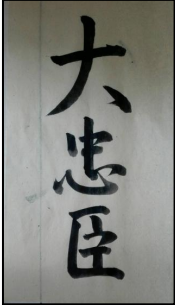 大忠臣